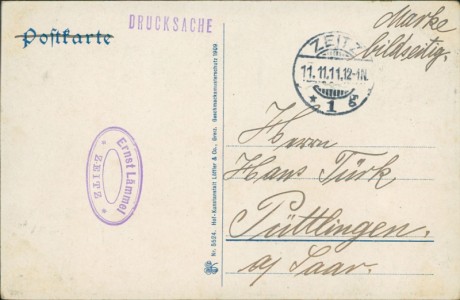 Postkarte
DRUCKSACHE
Marke
bildseitig.
ZEITZ
11.11.11,12-1N.
* 1 g
Ernst Lämmel
* ZEITZ *
Nr. 5524. Hof-Kunstanstalt Löffler & Co., Greiz. Geschmacksmusterschutz 1909
Herrn
Hans Türk
Püttlingen
a/ Saar.